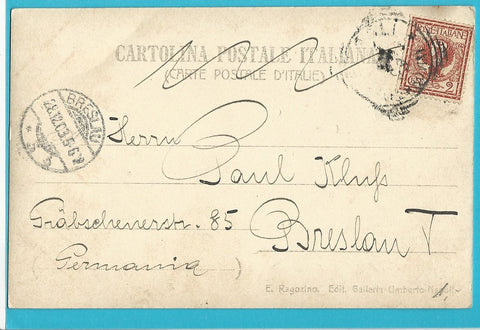 CARTOLINA POSTALE ITALIANA
(CARTE POSTALE D'ITALIE)
POSTE ITALIANE
BRESLAU
Herrn
Paul
Gräbschenerstr. 85
Breslau I
(Germania)
E. Ragozino. Edit. Galleria Umberto-Napoli